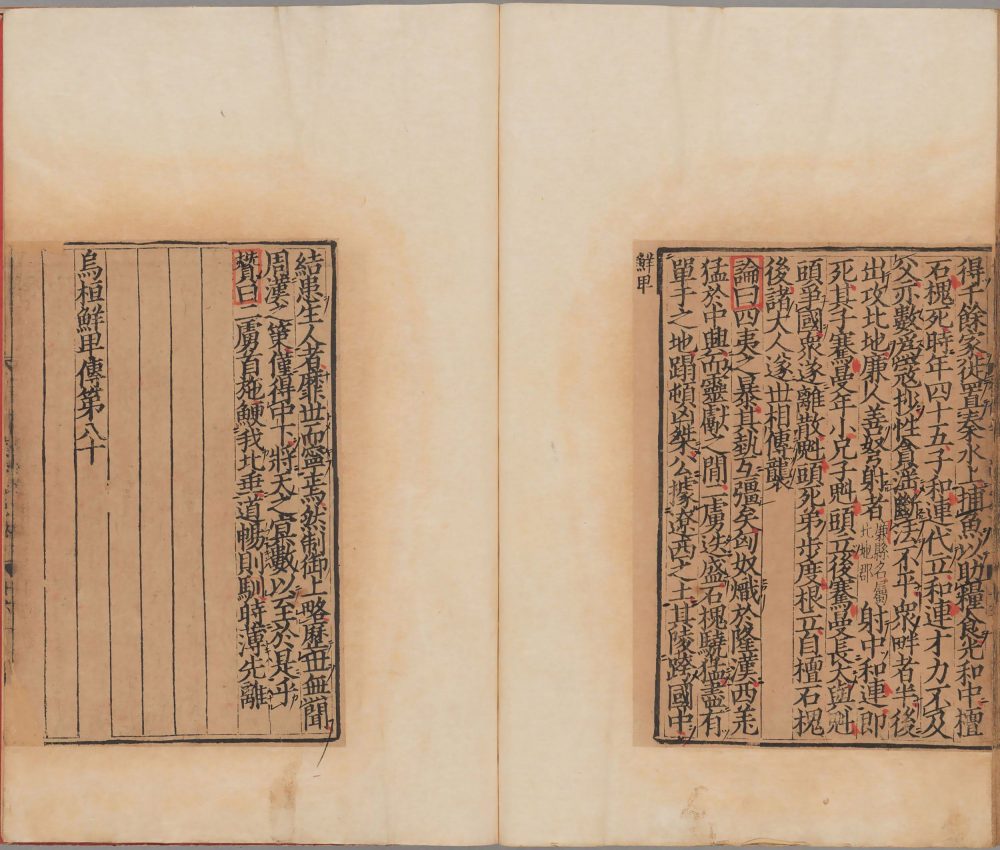 得千餘家徙置秦水上捕魚以助糧食光和中檀
石槐死時年四十五子和連代立和連才力不及
父亦數爲寇抄性貪淫斷法不平衆畔者半後
出攻北地廉人善弩射者廉縣名屬北地郡射中和連即
死其子騫曼年小兄子魁頭立後騫曼長大與魁
頭爭國衆遂離散魁頭死弟步度根立自檀石槐
後諸大人遂世相傳襲
論曰四夷之暴其埶互彊矣匈奴熾於隆漢西羌
猛於中興而靈獻之間二虜迭盛石槐驍猛盡有
單于之地蹋頓凶桀公據遼西之土其陵跨國中
鮮卑
結患生人者靡世而寧焉然制御上略歷世無聞
周漢之策僅得中下將天之冥數以至於是乎
贊曰二虜首施鯁我北垂道暢則馴時薄先離
烏桓鮮卑傳第八十